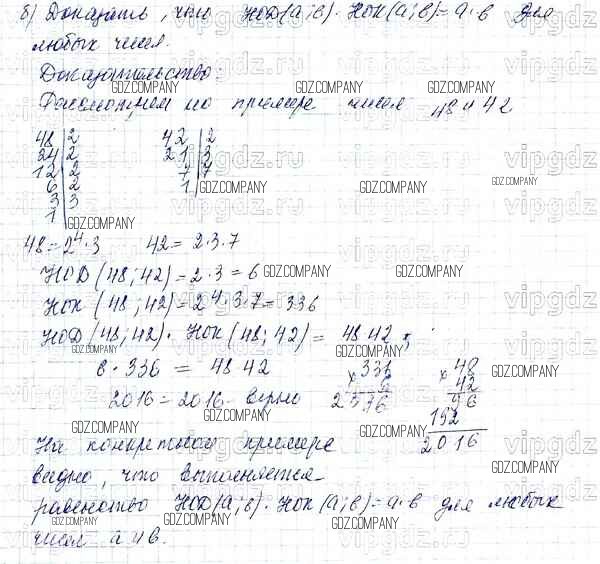 б) Доказать, что НОД(а;в)·НОК(а;в)=а·в для
любых чисел.
Доказательство:
Рассмотрим на примере чисел 48 и 42
48|2 42|2
24|2 21|3
12|2 7|7
6|2 1
3|3
1
48=2⁴·3 42=2·3·7
НОД(48;42)=2·3=6
НОК(48;42)=2⁴·3·7=336
НОД(48;42)·НОК(48;42)=48·42;
6·336 = 48·42
2016=2016 верно
×336 ×48
6 42
96
192
2016
На конкретном примере
видно, что выполняется
равенство НОД(а;в)·НОК(а;в)=а·в для любых
чисел а и в.
GDZ.COMPANY
vipgdz.ru